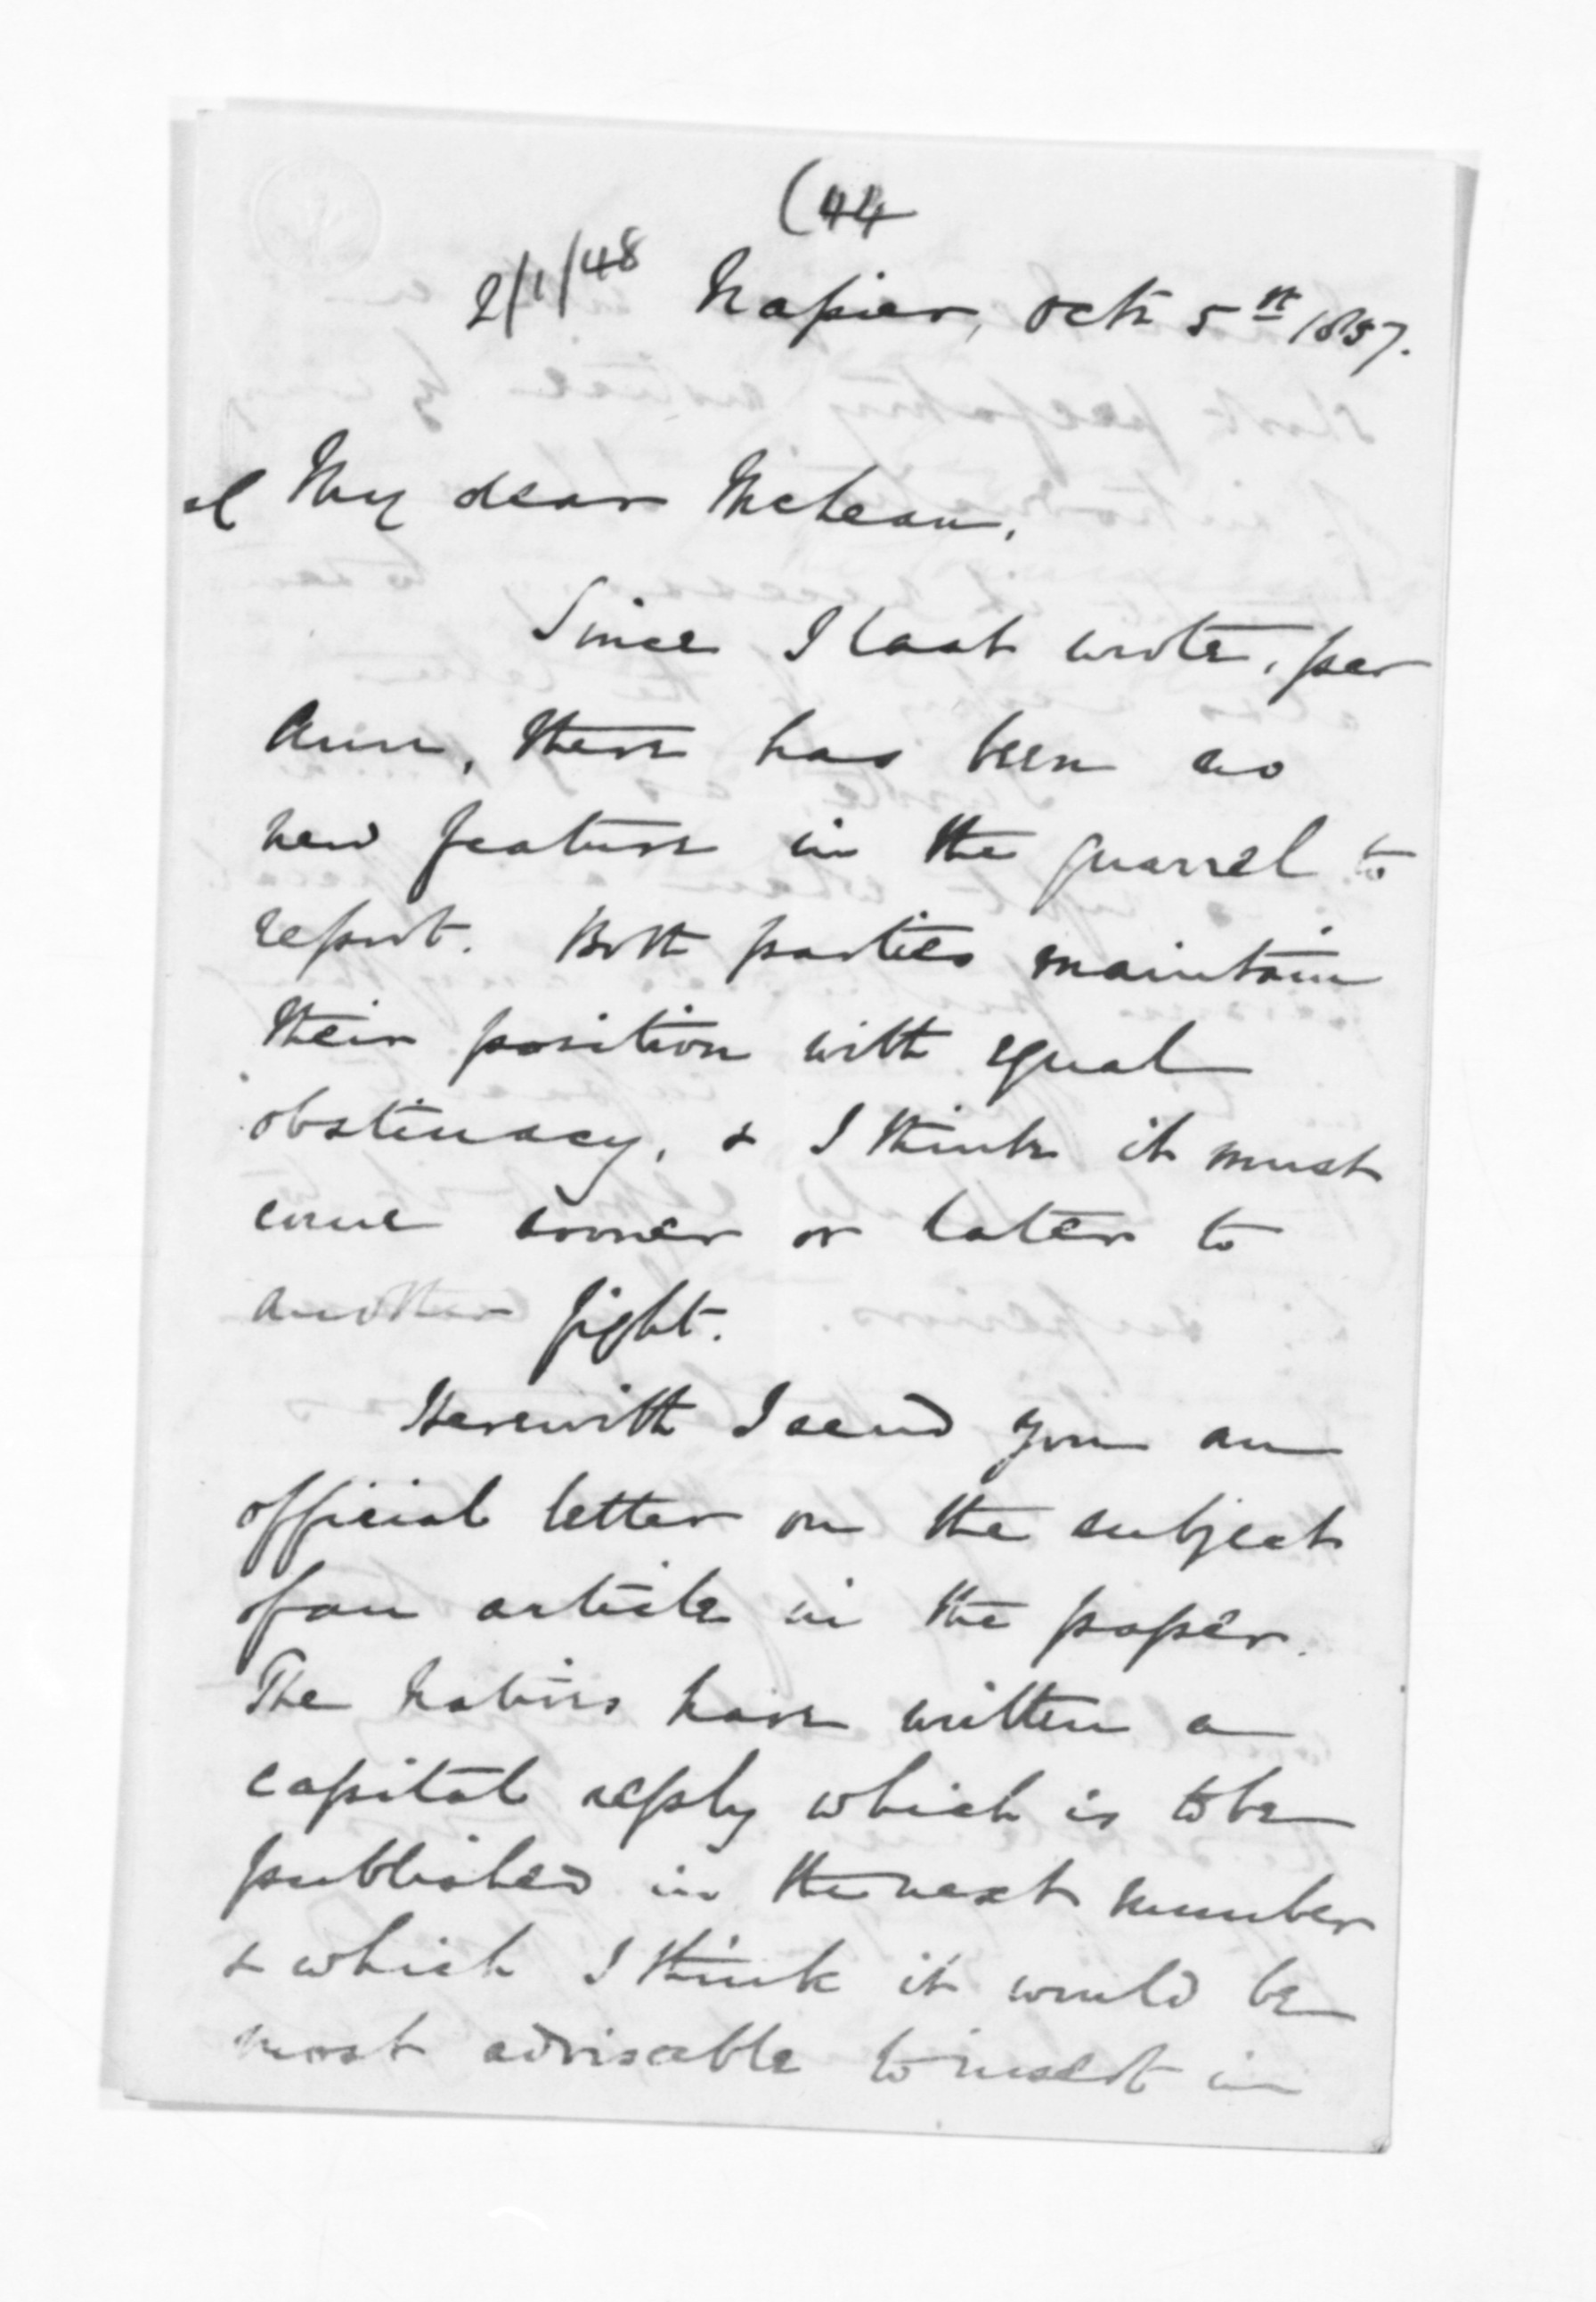 (44
2/1/48 Napier, Octr 5th 1857.
My dear McLean,
Since I last wrote, per
Ann, there has been no
new feature in the quarrel to
report. Both parties maintain
their position with equal
obstinacy, & I think it must
come sooner or later to
another fight.
Herewith I send you an
official letter on the subject
of an article in the paper.
The natives have written a
capital reply which is to be
published in the next number
& which I think it would be
most advisable to insert in